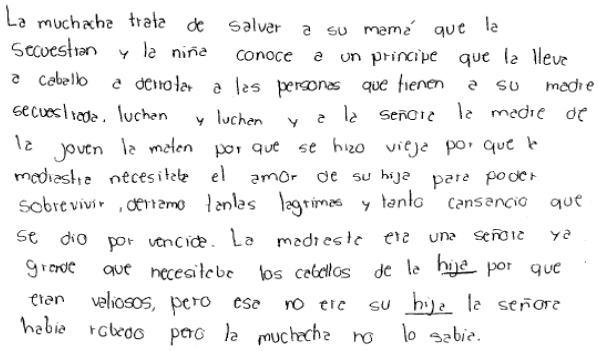 La muchacha trata de salvar a su mamá que la
secuestran y la niña conoce a un principe que la lleva
a caballo a derrotar a las personas que tienen a su madre
secuestrada. luchan y luchan y a la señora la madre de
la joven la maten por que se hizo vieja por que la
madrastra necesitaba el amor de su hija para poder
sobrevivir, derramo tantas lagrimas y tanto cansancio que
se dio por vencida. La madrasta era una señora ya
grande que necesitaba los cabellos de la hija por que
eran valiosos, pero esa no era su hija la señora
habia robado pero la muchacha no lo sabia.